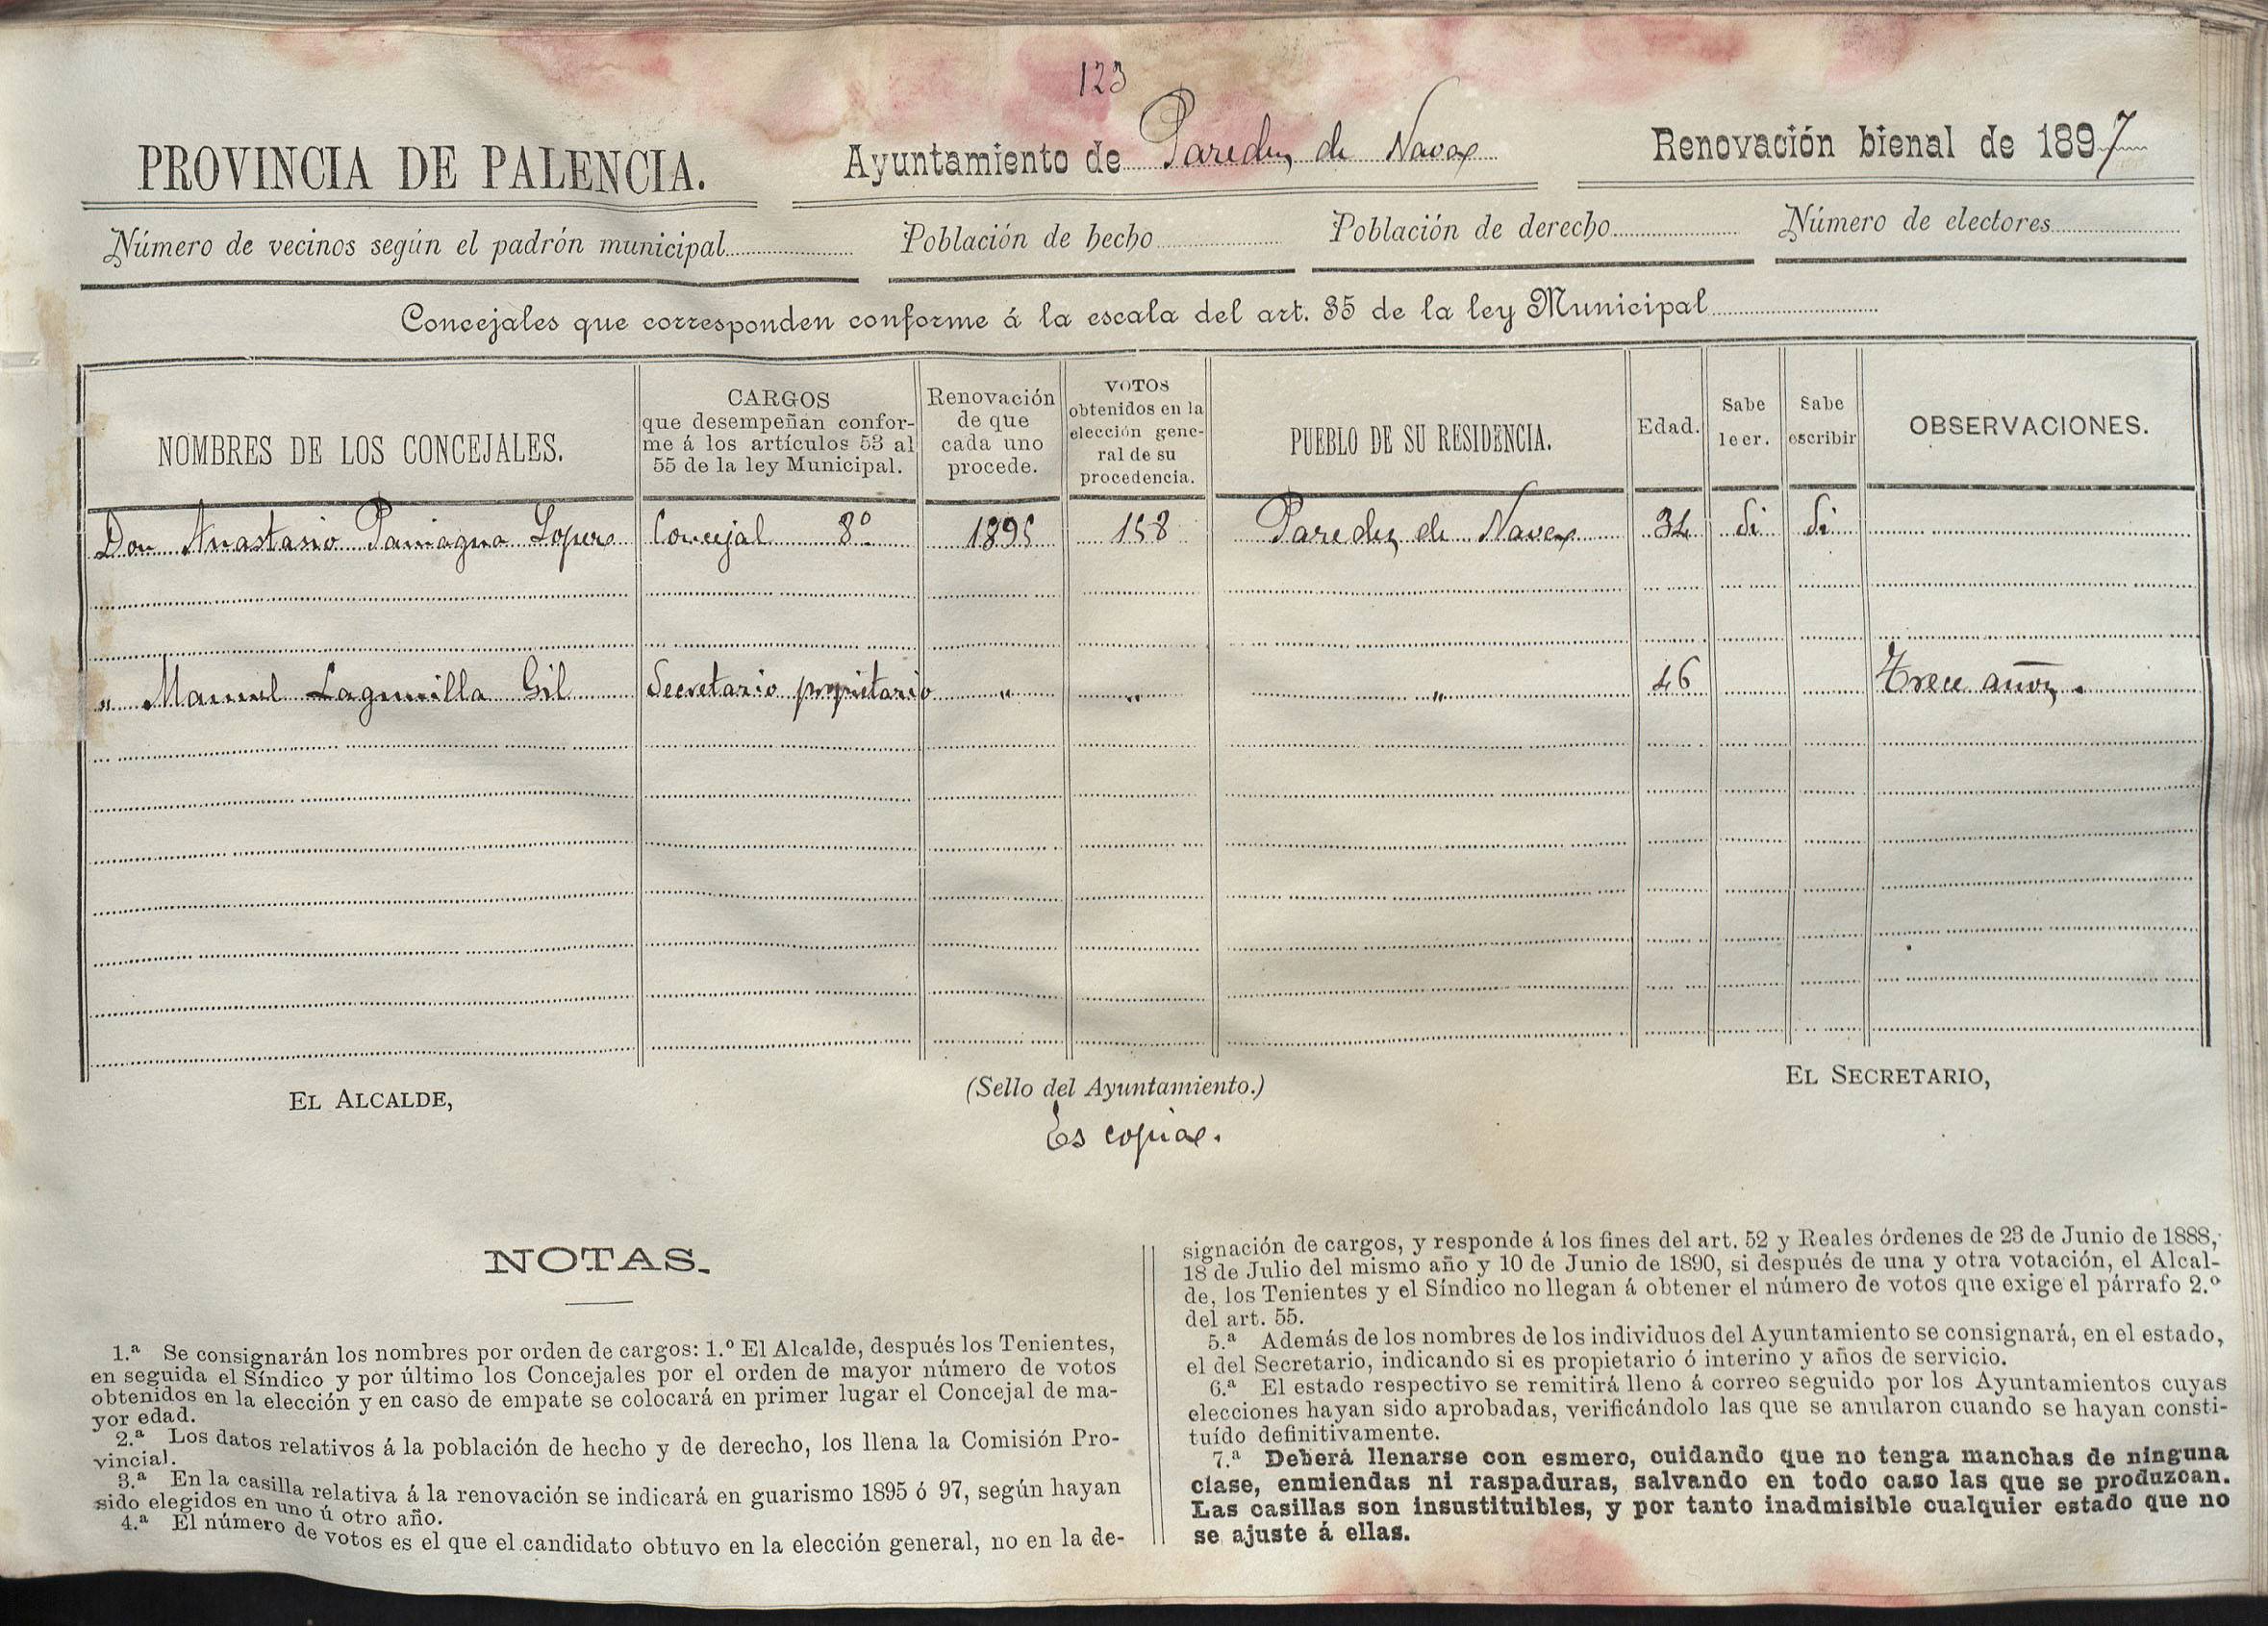 123
PROVINCIA DE PALENCIA.
Ayuntamiento de Paredes de Nava
Renovación bienal de 1897
Número de vecinos según el padrón municipal
Población de hecho
Población de derecho
Número de electores
Concejales que corresponden conforme á la escala del art. 35 de la ley Municipal
NOMBRES DE LOS CONCEJALES.
CARGOS
que desempeñan confor-
me á los artículos 53 al
55 de la ley Municipal.
Renovación
de que
cada uno
procede.
VOTOS
obtenidos en la
elección gene-
ral de su
procedencia.
PUEBLO DE SU RESIDENCIA.
Edad.
Sabe
leer.
Sabe
escribir
OBSERVACIONES.
Don Anastasio Paniagua Lopez Concejal 8º 1895 158 Paredes de Nava 34 Si Si
" Manuel Lagunilla Gil Secretario propietario " " " 46 Trece años.
EL ALCALDE,
(Sello del Ayuntamiento.)
EL SECRETARIO,
Es copia.
NOTAS.
1.ª Se consignarán los nombres por orden de cargos: 1.º El Alcalde, después los Tenientes,
en seguida el Síndico y por último los Concejales por el orden de mayor número de votos
obtenidos en la elección y en caso de empate se colocará en primer lugar el Concejal de ma-
yor edad.
2.ª Los datos relativos á la población de hecho y de derecho, los llena la Comisión Pro-
vincial.
3.ª En la casilla relativa á la renovación se indicará en guarismo 1895 ó 97, según hayan
sido elegidos en uno ú otro año.
4.ª El número de votos es el que el candidato obtuvo en la elección general, no en la de-
signación de cargos, y responde á los fines del art. 52 y Reales órdenes de 23 de Junio de 1888,
18 de Julio del mismo año y 10 de Junio de 1890, si después de una y otra votación, el Alcal-
de, los Tenientes y el Síndico no llegan á obtener el número de votos que exige el párrafo 2.º
del art. 55.
5.ª Además de los nombres de los individuos del Ayuntamiento se consignará, en el estado,
el del Secretario, indicando si es propietario ó interino y años de servicio.
6.ª El estado respectivo se remitirá lleno á correo seguido por los Ayuntamientos cuyas
elecciones hayan sido aprobadas, verificándolo las que se anularon cuando se hayan consti-
tuído definitivamente.
7.ª Deberá llenarse con esmero, cuidando que no tenga manchas de ninguna
clase, enmiendas ni raspaduras, salvando en todo caso las que se produzcan.
Las casillas son insustituibles, y por tanto inadmisible cualquier estado que no
se ajuste á ellas.